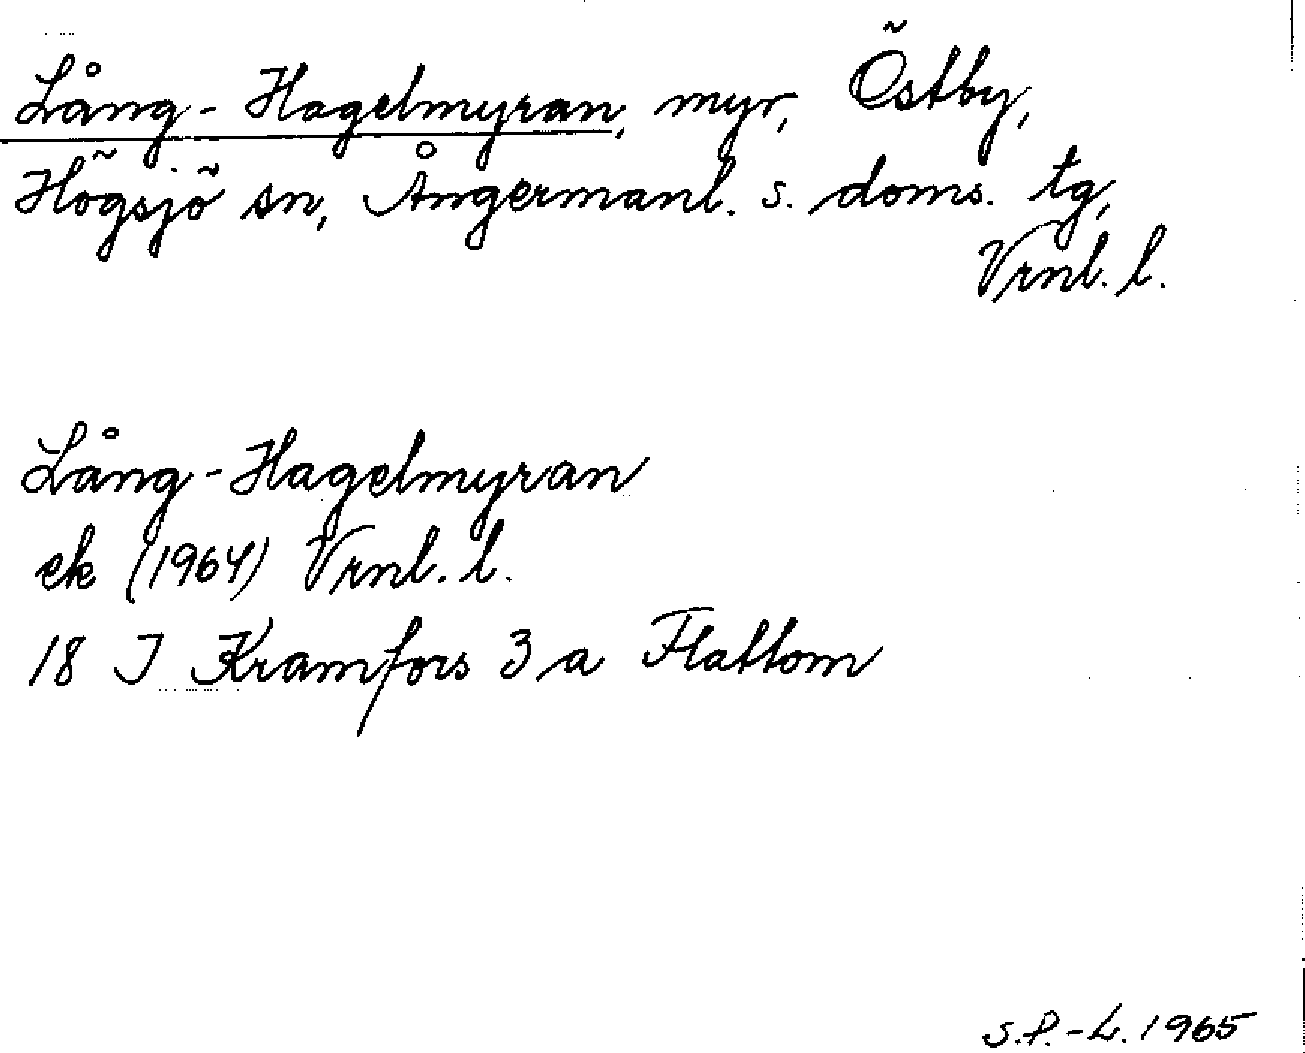 Lång-Hagelmyran, myr, Östby,
Högsjö sn, Ångermanl. s. doms. tg,
Vrnl. l.
Lång-Hagelmyran
ek (1964) Vrnl. l.
18 J Kramfors 3 a Flattom
S.P.-L. 1965